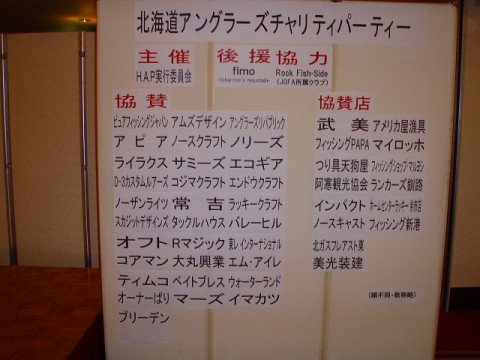 北海道アングラーズチャリティパーティー
主催 後援 協力
H.A.P実行委員会 fimo Rock Fish-Side
-fisherman's mountain- (JGFA所属クラブ)
協賛
ピュアフィッシングジャパン アムズデザイン アングラーズリパブリック
アピア ノースクラフト ノリーズ
ライラクス サミーズ エコギア
D-3カスタムルアーズ コジマクラフト エンドウクラフト
ノーザンライツ 常吉 ラッキークラフト
スカジットデザインズ タックルハウス バレーヒル
オフト Rマジック 東レインターナショナル
コアマン 大丸興業 エム・アイレ
ティムコ ベイトブレス ウォーターランド
オーナーばり マーズ イマカツ
ブリーデン
協賛店
武美 アメリカ屋漁具
フィッシングPAPA マイロッホ
つり具天狗屋 フィッシングショップ・マルヨシ
阿寒観光協会 ランカーズ釧路
インパクト ホームセンターラッキー
ノースキャスト フィッシング新港
北ガスフレアスト東
美光装建
(順不同・敬称略)